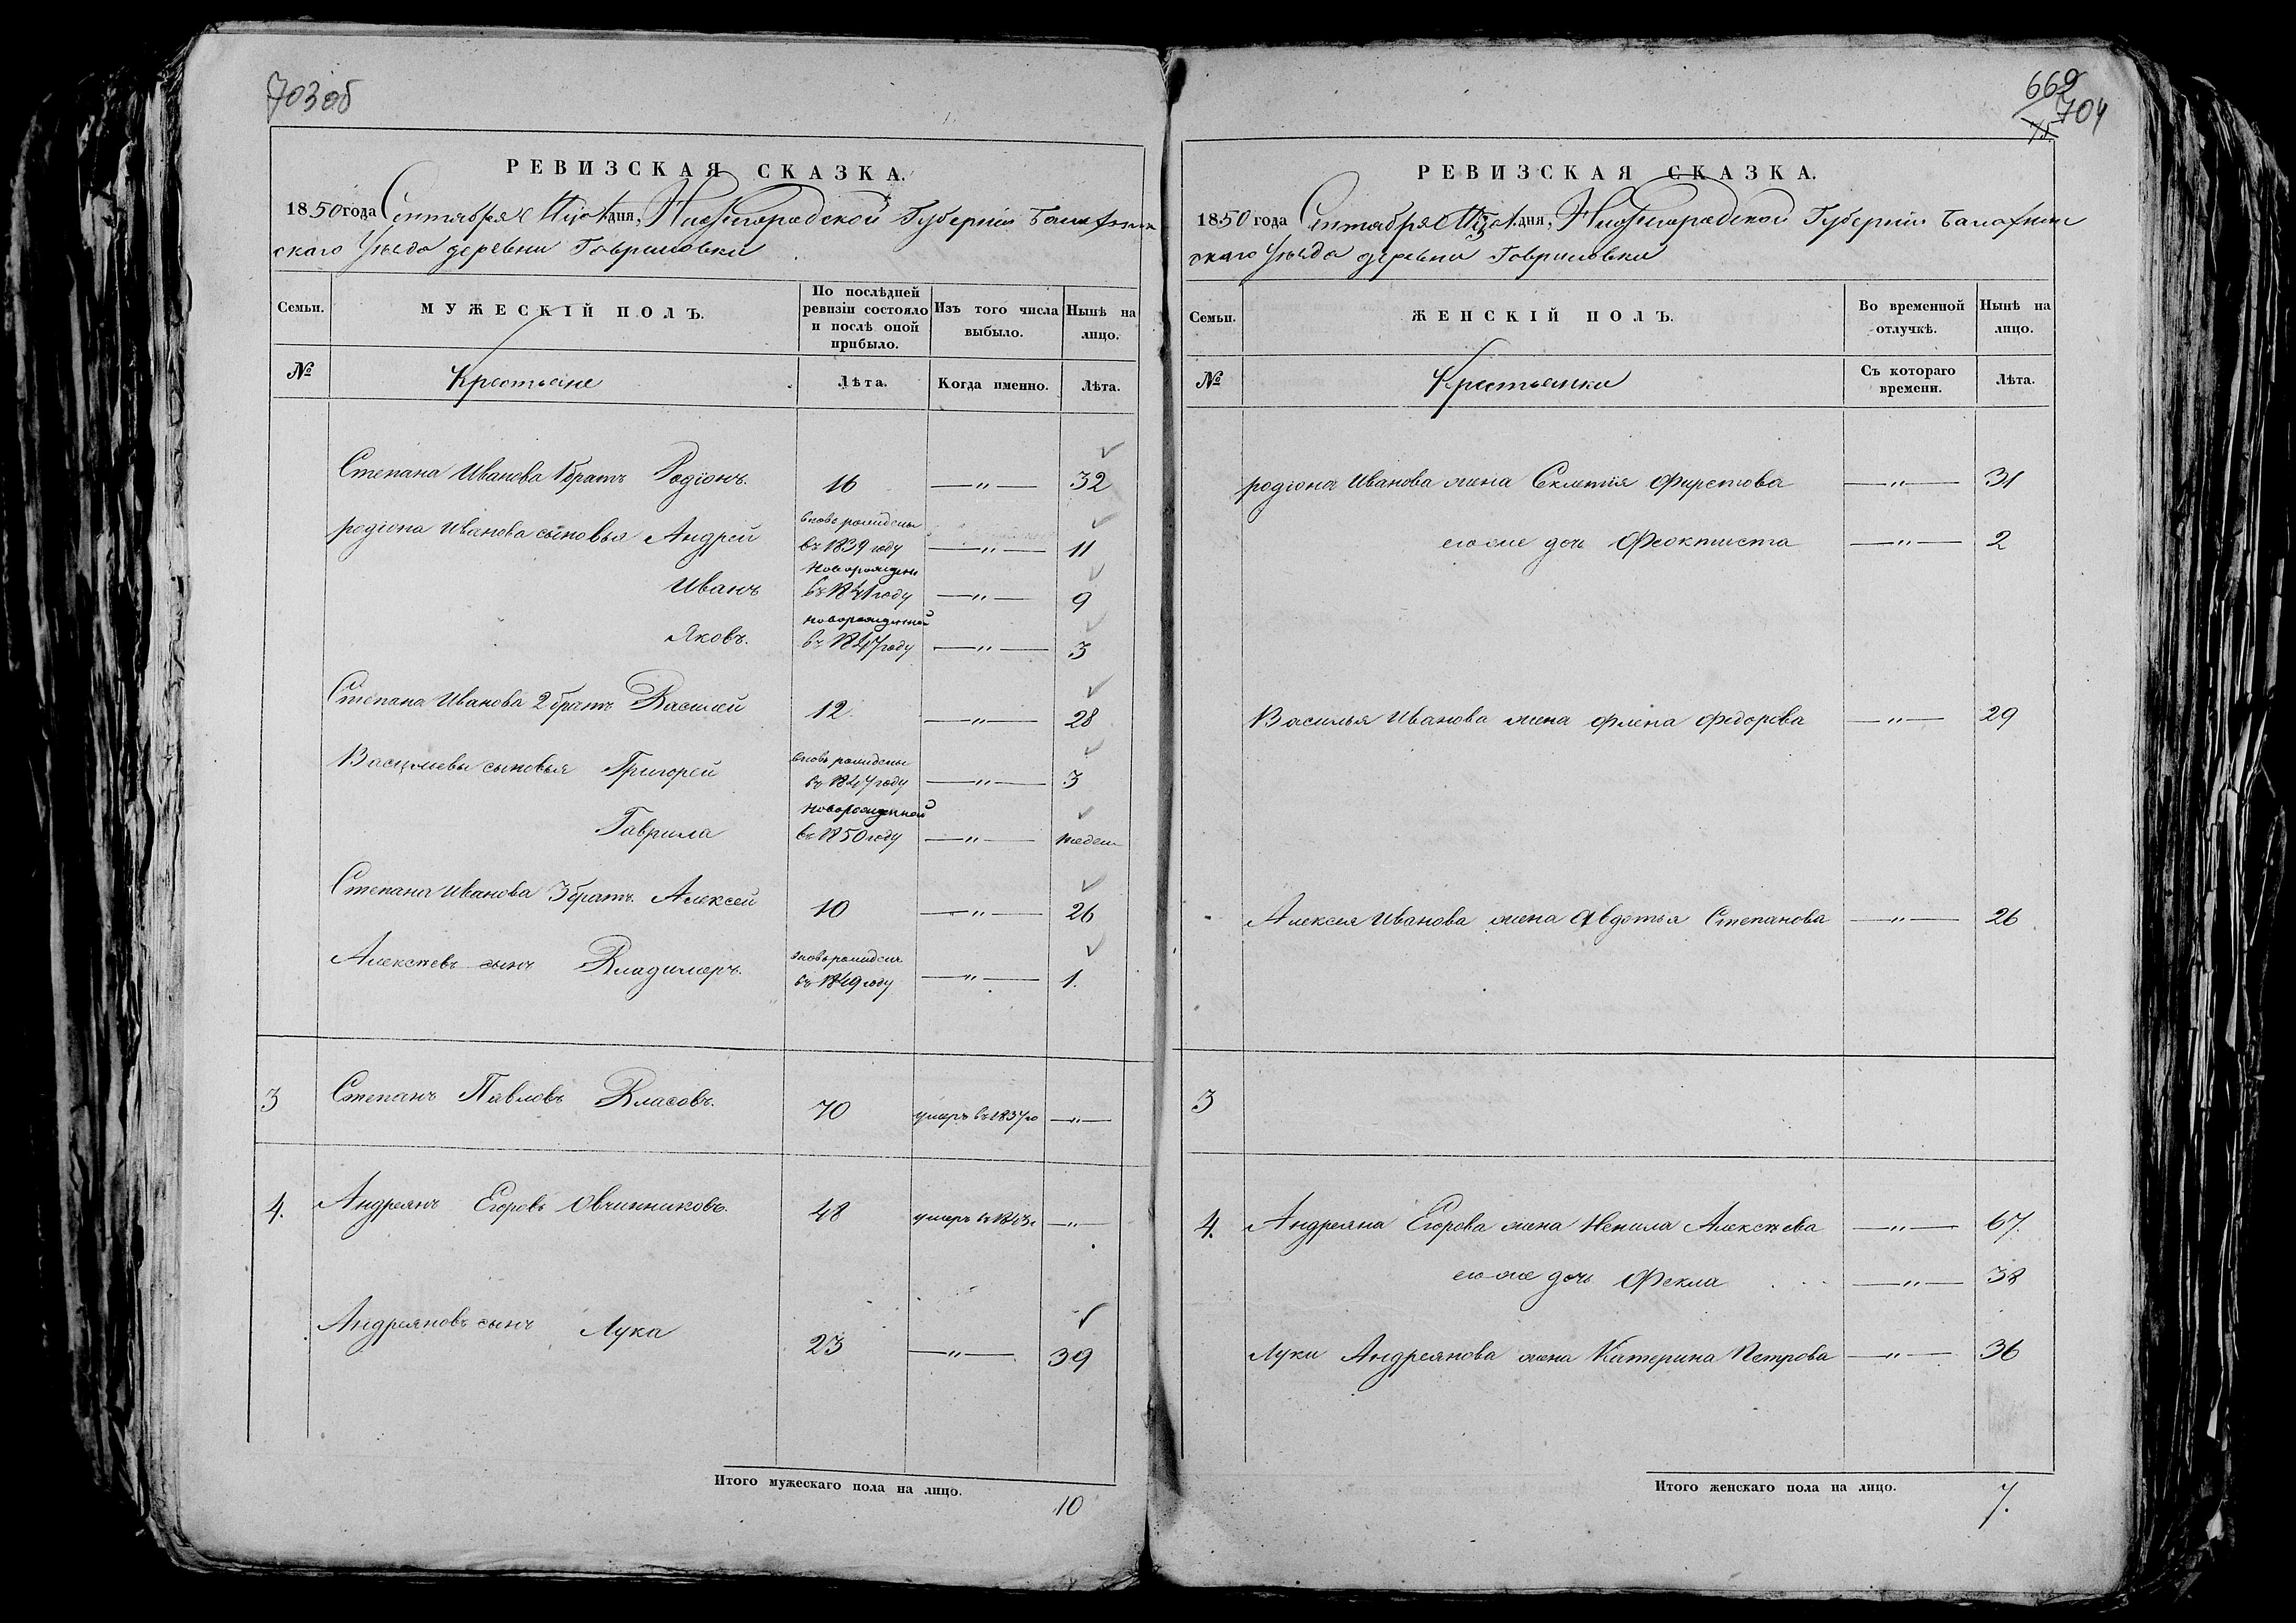 703 об
РЕВИЗСКАЯ СКАЗКА.
1850 года Сентября дня, Нижегородской Губернии Балахнин
скаго Уезда деревни Гавриловки
Семьи.
МУЖЕСКІЙ ПОЛЪ.
По послѣдней ревизіи состояло и послѣ оной прибыло.
Изъ того числа выбыло.
Нынѣ на лицо.
№
Крестьяне
Лѣта.
Когда именно.
Лѣта.
Степана Иванова 1 братъ Родіонъ. 16 —"— 32
родіона Иванова сыновья Андрей вновь рожденъ въ 1839 году —"— 11
Иванъ новорожденъ въ 1841 году —"— 9
Яковъ. новорожденной въ 1847 году —"— 3
Степана Иванова 2 братъ Василей 12 —"— 28
Васильевы сыновья Григорей вновь рожденъ въ 1847 году —"— 3
Гаврила новорожденной въ 1850 году —"— недел
Степана Иванова 3 братъ Алексей 10 —"— 26
Алексѣевъ сынъ Владимеръ. вновь рожденъ въ 1849 году —"— 1.
3 Степанъ Павловъ Власовъ. 70 умеръ въ 1837 го —"—
4. Андреянъ Егоровъ Овчинниковъ. 48 умеръ въ 1843 г —"—
Андреяновъ сынъ Лука 23 —"— 39
Итого мужескаго пола на лицо.
10
669
704
РЕВИЗСКАЯ СКАЗКА.
1850 года Сентября дня, Нижегородской Губернии Балахнин
скаго Уезда деревни Гавриловки
Семьи.
ЖЕНСКІЙ ПОЛЪ.
Во временной отлучкѣ.
Нынѣ на лицо.
№
Крестьянки
Съ котораго времени.
Лѣта.
родіона Иванова жена Секлетія Фирстова —"— 31
его же дочь Феоктиста —"— 2
Василья Иванова жена Флена Федорова —"— 29
Алексея Иванова жена Авдотья Степанова —"— 26
3
4. Андреяна Егорова жена Ненила Алексѣева —"— 67.
его же дочь Фекла —"— 38
Луки Андреянова жена Катерина Петрова —"— 36
Итого женскаго пола на лицо.
7.